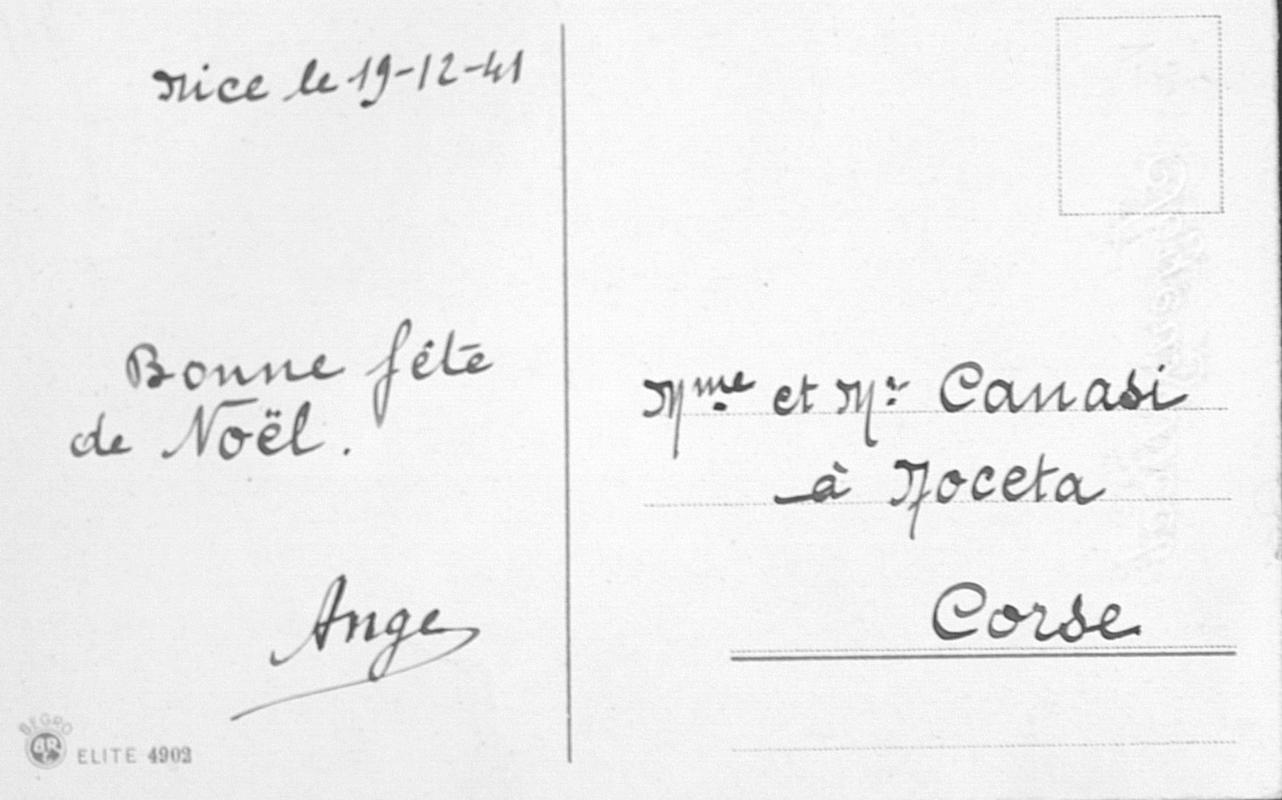 Nice le 19-12-41
Bonne fête
de Noël.
Ange
Mme et Mr Canasi
à Noceta
Corse
BEGRO
ELITE 4902